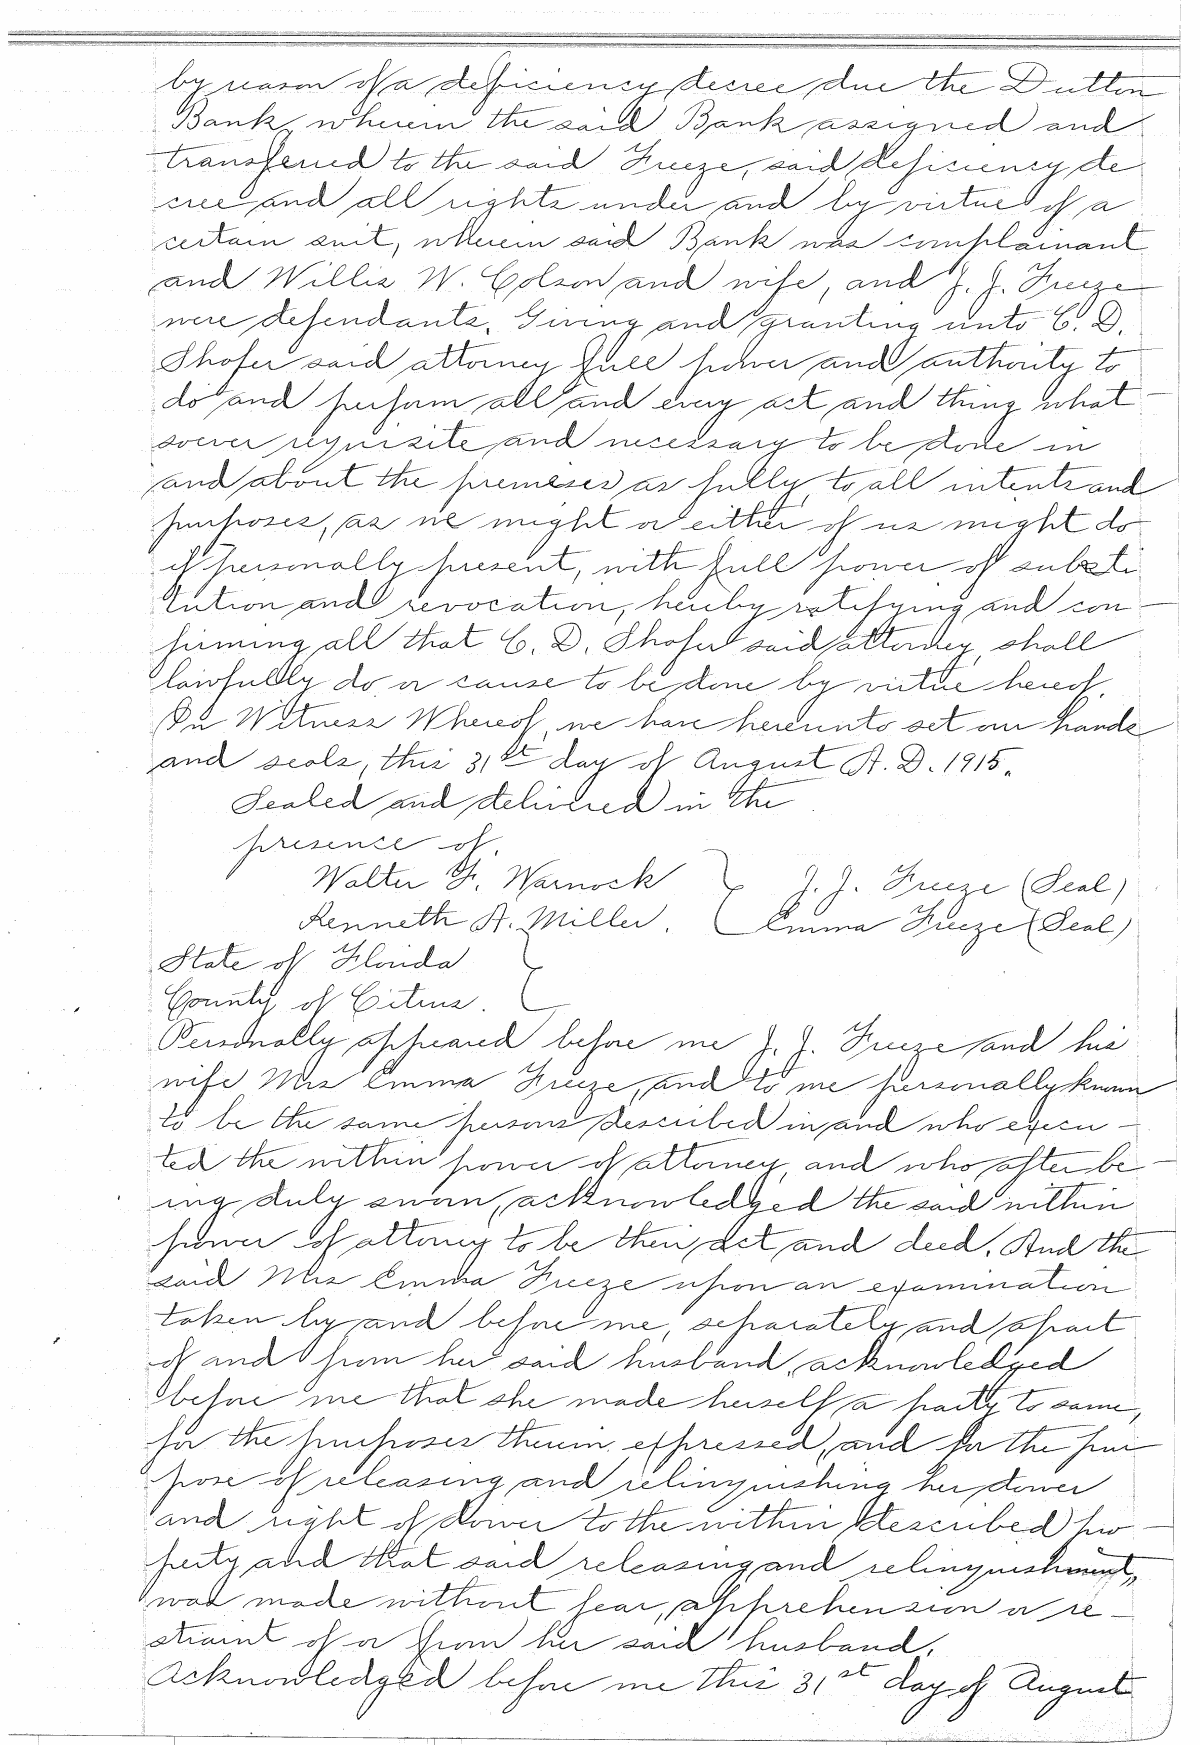 by reason of a deficiency decree due the Dutton
Bank, wherein the said Bank assigned and
transferred to the said Freeze, said deficiency de
cree and all rights under and by virtue of a
certain suit, wherein said Bank was complainant
and Willis W. Colson and wife, and J. J. Freeze
were defendants. Giving and granting unto C. D.
Shofer said attorney full power and authority to
do and perform all and every act and thing what
soever requisite and necessary to be done in
and about the premises as fully, to all intents and
purposes, as we might or either of us might do
if personally present, with full power of substi
tution and revocation, hereby ratifying and con-
firming all that C. D. Shofer said attorney, shall
lawfully do or cause to be done by virtue hereof.
In Witness Whereof, we have hereunto set our hands
and seals, this 31st day of August A. D. 1915.
Sealed and delivered in the
presence of.
Walter F. Warnock } J. J. Freeze (Seal)
Kenneth A. Miller. { Emma Freeze (Seal)
State of Florida }
County of Citrus. {
Personally appeared before me J. J. Freeze and his
wife Mrs Emma Freeze, and to me personally known
to be the same persons described in and who execu-
ted the within power of attorney, and who after be-
ing duly sworn, acknowledged the said within
power of attorney to be their act and deed. And the
said Mrs Emma Freeze upon an examination
taken by and before me, separately and apart
of and from her said husband, acknowledged
before me that she made herself a party to same,
for the purposes therein expressed, and for the pur
pose of releasing and relinquishing her dower
and right of dower to the within described pro-
perty and that said releasing and relinquishment,
was made without fear, apprehension or re-
straint of or from her said husband.
Acknowledged before me this 31st day of August